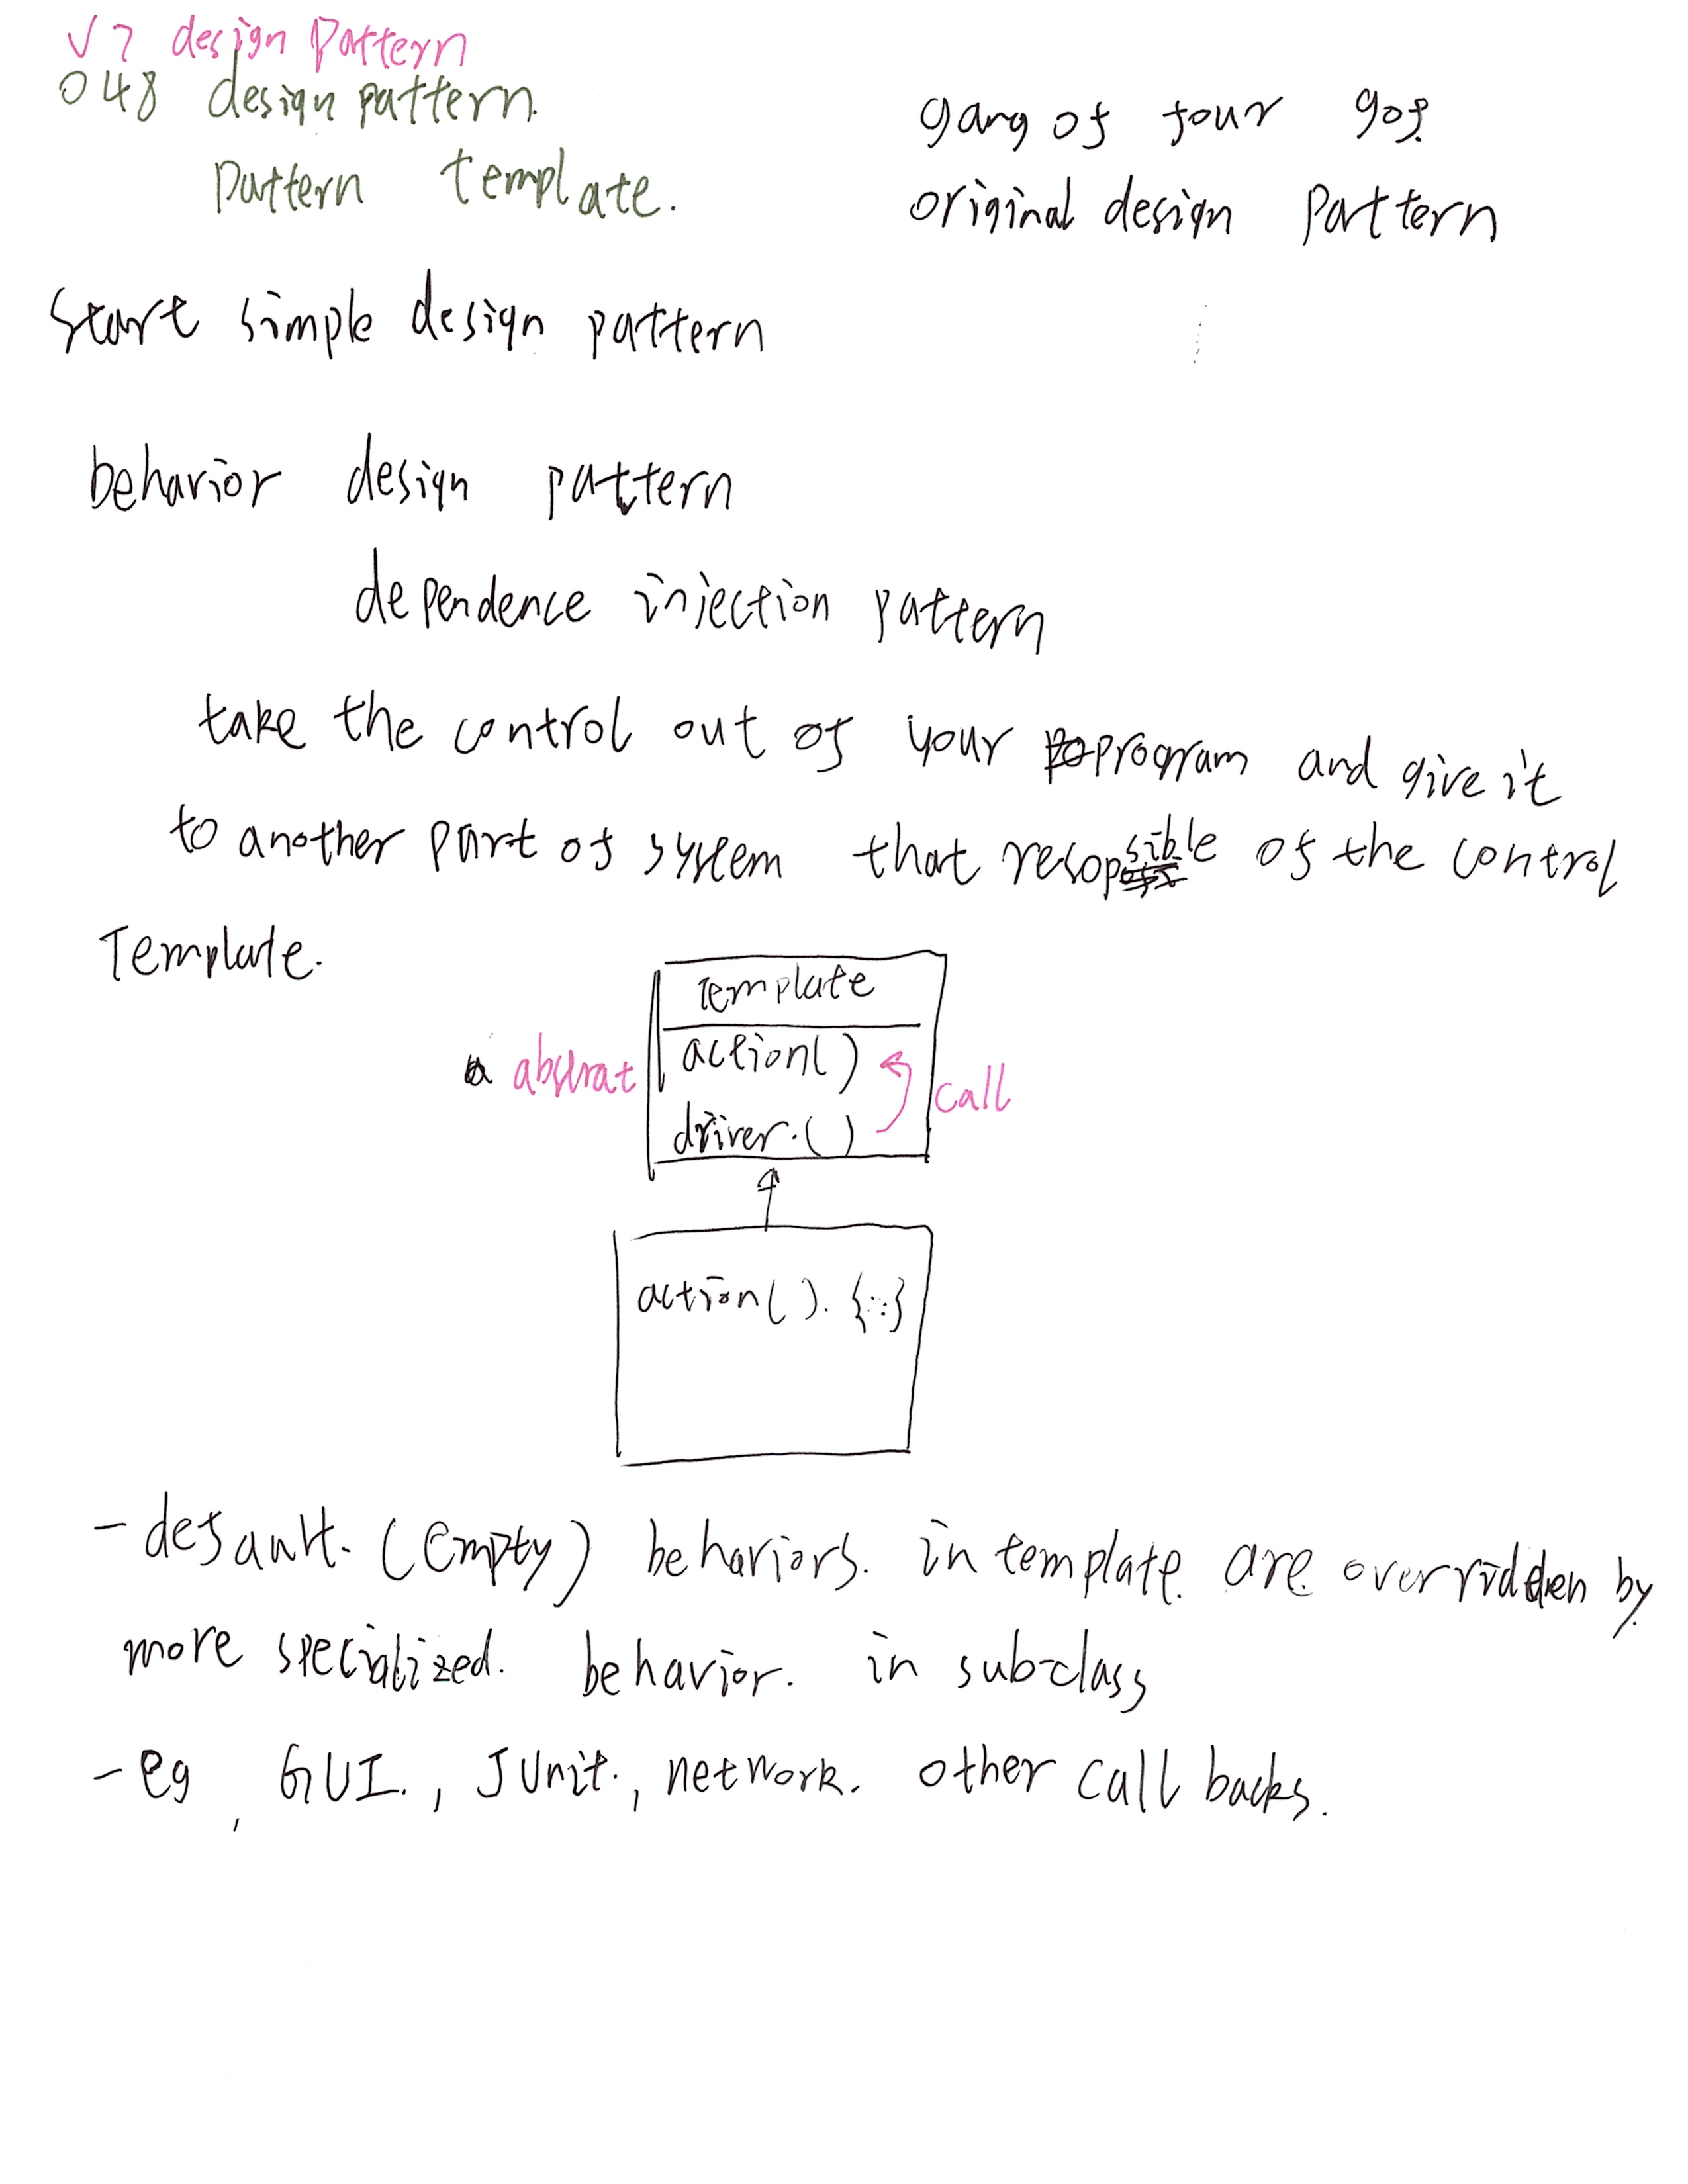 V7 design Pattern
048 design pattern.
Pattern template.
gang of four gof.
original design pattern
Start simple design pattern
behavior design pattern
dependence injection pattern
take the control out of your program and give it
to another part of system that resopsible of the control
Template.
template
abstrat action() call
driver.()
action(). {::}
- default. (Empty) behaviors. in template. are overridden by
more specialized. behavior. in sub-class
- eg, GUI., JUnit., network. other call backs.